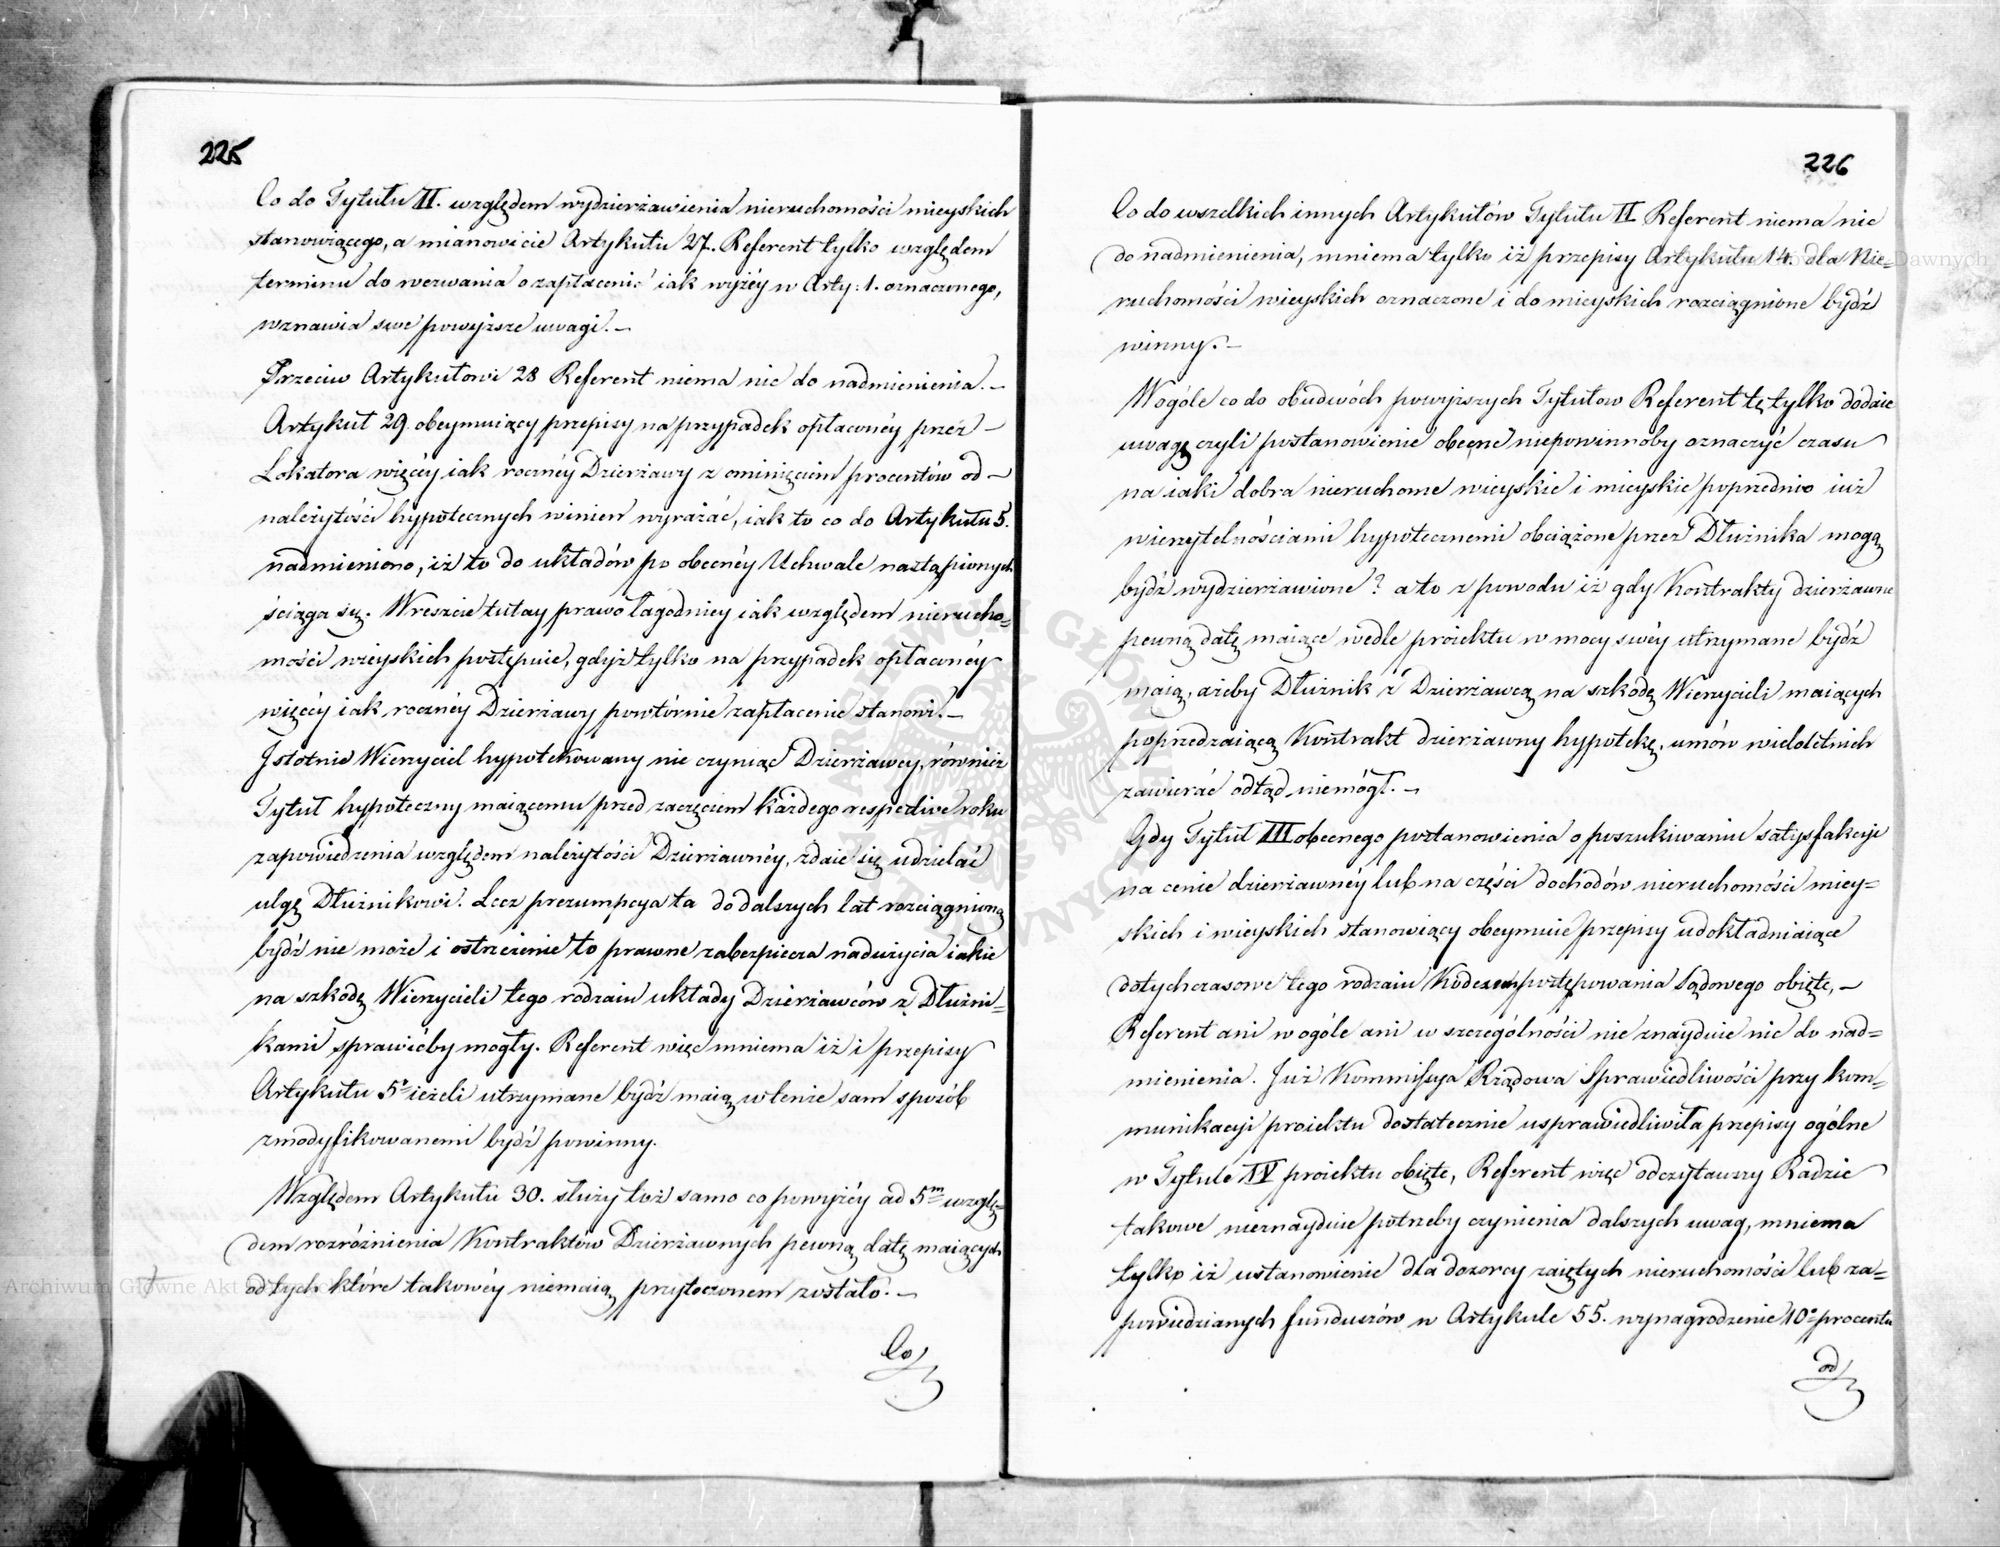 225
Co do Tytułu II. względem wydzierżawienia nieruchomości mieyskich
stanowiącego, a mianowicie Artykułu 27. Referent tylko względem
terminu do wezwania o zapłacenie iak wyżéy w Arty: 1. oznaczonego,
wznawia swe powyższe uwagi. –
Przeciw Artykułowi 28 Referent niema nic do nadmienienia. –
Artykuł 29. obeymuiący przepisy na przypadek opłaconéy przez –
Lokatora więcéy iak rocznéy Dzierżawy z ominięciem procentów od –
należytości hypotecznych winien wyrażać, iak to co do Artykułu 5.
nadmieniono, iż to do układów po obecnéy Uchwale nastąpionych
ściąga się. Wreszcie tutay prawo łagodniey iak względem nierucho=
mości wieyskich postępuie, gdyż tylko na przypadek opłaconéy
więcéy iak rocznéy Dzierżawy powtórnie zapłacenie stanowi. –
Istotnie Wierzyciel hypotekowany nie czyniąc Dzierżawcy, również
Tytuł hypoteczny maiącemu przed zaczęciem każdego respective roku
zapowiedzenia względem należytości Dzierżawnéy, zdaie się udzielać
ulgę Dłużnikowi. Lecz prezumpcya ta do dalszych lat rozciągnioną
bydź nie może i ostrzeżenie to prawne zabezpiecza nadużycia iakie
na szkodę Wierzycieli tego rodzaiu układy Dzierżawców z Dłużni=
kami sprawićby mogły. Referent więc mniema iż i przepisy
Artykułu 5º ieżeli utrzymane bydź maią, w tenże sam sposób
zmodyfikowanemi bydź powinny.
Względem Artykułu 30. służy toż samo co powyżéy ad 5m wzglę=
dem rozróżnienia Kontraktów Dzierżawnych pewną datę maiących
od tych które takowéy niemaią przytoczonem zostało. –
Co
226
Co do wszelkich innych Artykułów Tytułu II Referent niema nic
do nadmienienia, mniema tylko iż przepisy Artykułu 14. dla Nie=
ruchomości wieyskich oznaczone i do mieyskich rozciągnione bydź
winny. –
Wogóle co do obudwóch powyższych Tytułow Referent tę tylko dodaie
uwagę czyli postanowienie obecne niepowinnoby oznaczyć czasu
na iaki dobra nieruchome wieyskie i mieyskie poprzednio iuż
wierzytelnościami hypotecznemi obciążone przez Dłużnika mogą
bydź wydzierżawione? a to z powodu iż gdy Kontrakty dzierżawne
pewną datę maiące wedle proiektu w mocy swéy utrzymane bydź
maią, ażeby Dłużnik z Dzierżawcą na szkodę Wierzycieli maiących
poprzedzaiącą Kontrakt dzierżawny hypotekę, umów wieloletnich
zawierać odtąd niemógł. –
Gdy Tytuł III obecnego postanowienia o poszukiwaniu satysfakcyi
na cenie dzierżawnéy lub na części dochodów nieruchomości miey=
skich i wieyskich stanowiący obeymuie przepisy udokładniaiące
dotychczasowe tego rodzaiu Kodexem postępowania Sądowego obięte, –
Referent ani wogóle ani w szczególności nie znayduie nic do nad=
mienienia. Już Kommissya Rządowa Sprawiedliwości przy kom=
munikacyi proiektu dostatecznie usprawiedliwiła przepisy ogólne
w Tytule IV proiektu obięte, Referent więc odczytawszy Radzie
takowe nieznayduie potrzeby czynienia dalszych uwag, mniema
tylko iż ustanowienie dla dozorcy zaiętych nieruchomości lub za=
powiedzianych funduszów w Artykule 55. wynagrodzenie 10º procentu
od